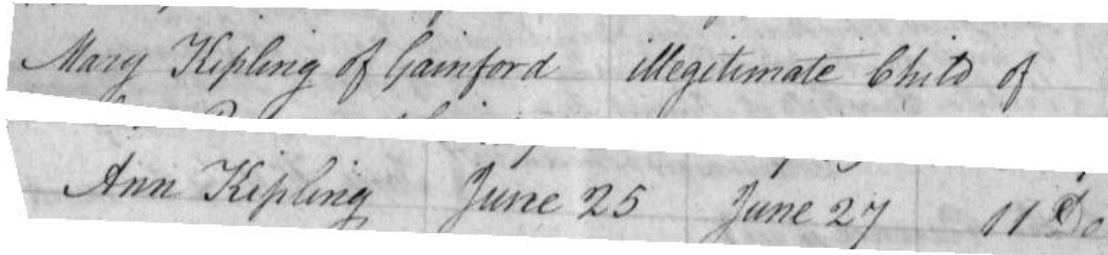 Mary Kipling of Gainford illegitimate Child of
Ann Kipling June 25 June 27 11 Do